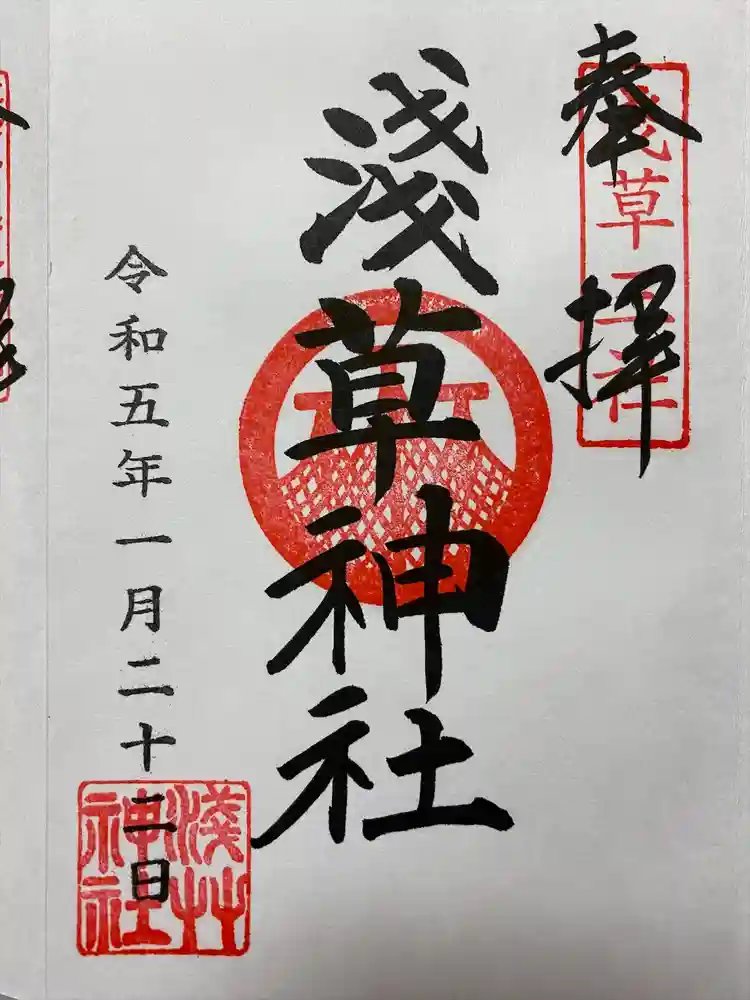 奉拝
浅草三社
淺草神社
令和五年一月二十二日
淺艸
神社